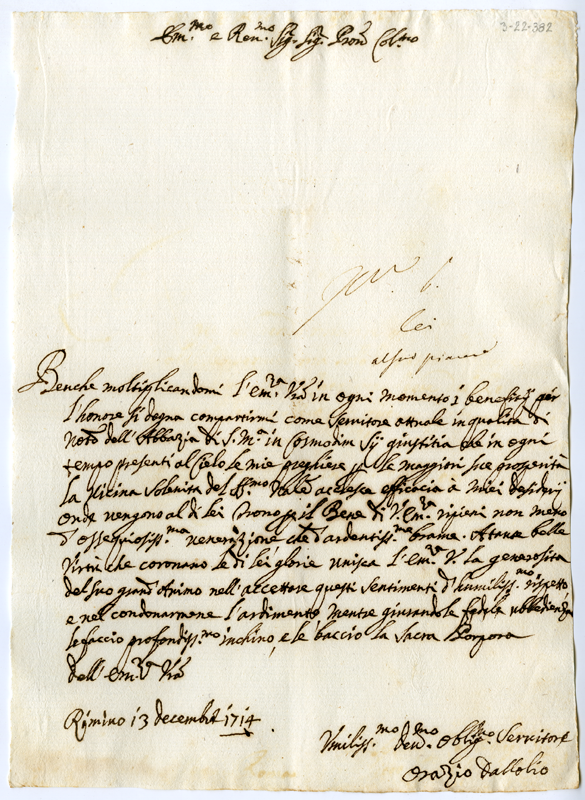 3-22-382
Em.mo e Ren.mo Sig. Sig. Pron Col.mo
lei
al suo piacere
Benche moltiplicandomi L'em.a Vra in ogni momento i benefitij per
L'honore si degna compartirmi come servitore attuale in qualità di
Noto dell'Abbazia di S. Ma in Cosmodim sij giustitia che in ogni
tempo presenti al Cielo le mie preghiere p le maggiori sue prosperità
la vicina solenità del S.mo Nale accresce efficacia à miei desiderij
onde vengono al di lei Trono p il Bene di V. Em.a ripieni non meno
d'ossequiosiss.ma venerazione che d'ardentiss.me brame. A tante belle
virtù che coronano le di lei glorie unisca L'em.a V. la generosità
del suo grand'Animo nell'accettare questi sentimenti d'humiliss.mo rispetto
e nel condonarmene l'ardimento, mentre giurandole fedele ubbedienza
le faccio profondiss.mo inchino, e le baccio la Sacra Porpora
dell'em.a Vra
Rimino 13 decembre 1714
Vmiliss.mo Deu.mo Oblig.mo Servitore
Orazio Dallolio